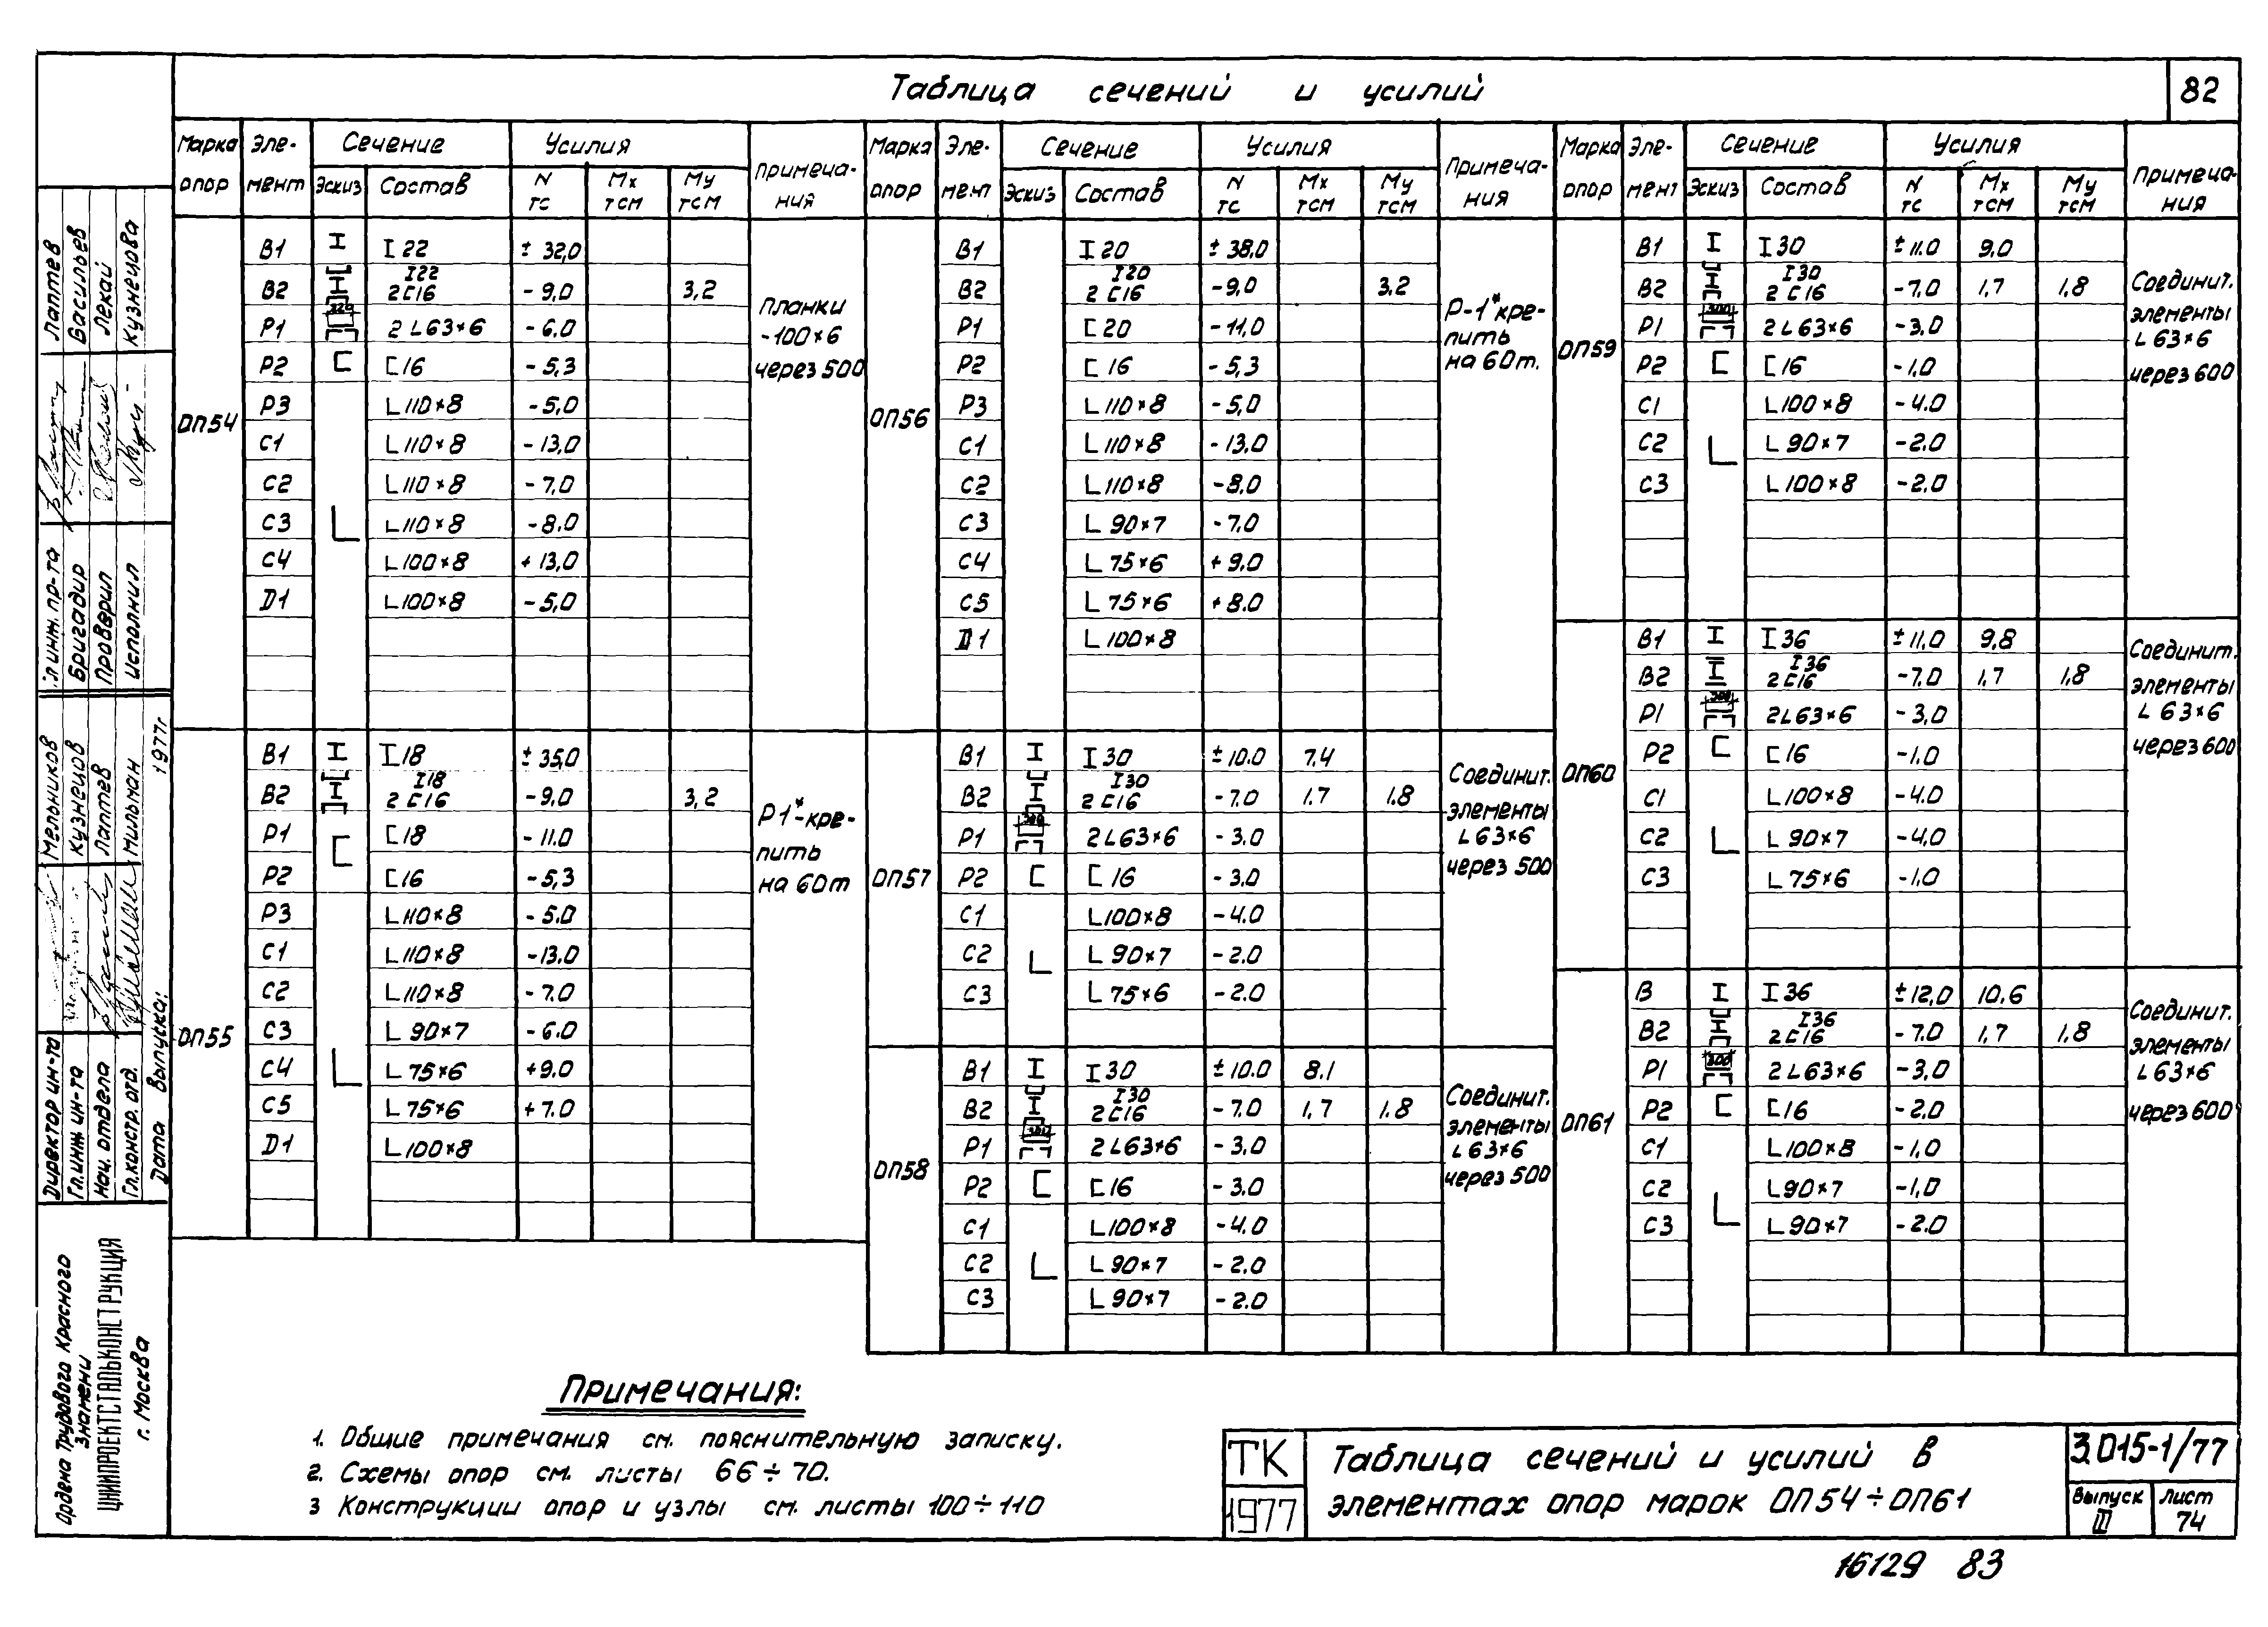 Таблица сечений и усилий
82
Марка опор | Эле-мент | Сечение | Усилия | Примеча-ния
Эскиз | Состав | N тс | Mx тсм | My тсм
ОП54
В1 I22 ± 32,0
В2 I22 2С16 -9,0 3,2
Р1 320 2L63×6 -6.0
Р2 С16 -5,3
Р3 L110×8 -5,0
С1 L110×8 -13,0
С2 L110×8 -7.0
С3 L110×8 -8.0
С4 L100×8 +13,0
D1 L100×8 -5,0
Планки
-100×6
через 500
ОП55
В1 I18 ± 35,0
В2 I18 2С16 -9,0 3,2
Р1 С18 -11.0
Р2 С16 -5,3
Р3 L110×8 -5.0
С1 L110×8 -13.0
С2 L110×8 -7.0
С3 L90×7 -6.0
С4 L75×6 +9.0
С5 L75×6 +7.0
D1 L100×8
Р1*-кре-
пить
на 60т
Марка опор | Эле-мент | Сечение | Усилия | Примеча-ния
Эскиз | Состав | N тс | Mx тсм | My тсм
ОП56
В1 I20 ± 38,0
В2 I20 2С16 -9,0 3,2
Р1 С20 -11,0
Р2 С16 -5,3
Р3 L110×8 -5,0
С1 L110×8 -13,0
С2 L110×8 -8,0
С3 L90×7 -7.0
С4 L75×6 +9.0
С5 L75×6 +8.0
D1 L100×8
Р-1*кре-
пить
на 60т.
ОП57
В1 I30 ±10.0 7.4
В2 I30 2С16 -7.0 1.7 1.8
Р1 300 2L63×6 -3.0
Р2 С16 -3.0
С1 L100×8 -4.0
С2 L90×7 -2.0
С3 L75×6 -2.0
Соединит.
элементы
L63×6
через 500
ОП58
В1 I30 ±10.0 8.1
В2 I30 2С16 -7.0 1,7 1.8
Р1 300 2L63×6 -3.0
Р2 С16 -3.0
С1 L100×8 -4.0
С2 L90×7 -2.0
С3 L90×7 -2.0
Соединит.
элементы
L63×6
через 500
Марка опор | Эле-мент | Сечение | Усилия | Примеча-ния
Эскиз | Состав | N тс | Mx тсм | My тсм
ОП59
В1 I30 ±11.0 9,0
В2 I30 2С16 -7.0 1,7 1,8
Р1 300 2L63×6 -3,0
Р2 С16 -1,0
С1 L100×8 -4.0
С2 L90×7 -2.0
С3 L100×8 -2.0
Соединит.
элементы
L63×6
через 600
ОП60
В1 I36 ±11,0 9,8
В2 I36 2С16 -7.0 1,7 1,8
Р1 300 2L63×6 -3,0
Р2 С16 -1.0
С1 L100×8 -4.0
С2 L90×7 -4,0
С3 L75×6 -1,0
Соединит.
элементы
L63×6
через 600
ОП61
В I36 ±12,0 10.6
В2 I36 2С16 -7.0 1,7 1,8
Р1 300 2L63×6 -3,0
Р2 С16 -2.0
С1 L100×8 -1,0
С2 L90×7 -1,0
С3 L90×7 -2.0
Соединит.
элементы
L63×6
через 600
Примечания:
1. Общие примечания см. пояснительную записку.
2. Схемы опор см. листы 66÷70.
3 Конструкции опор и узлы см. листы 100÷110
ТК
1977
Таблица сечений и усилий в
элементах опор марок ОП54÷ОП61
3.015-1/77
Выпуск III
Лист 74
16129 83
Гл инж. пр-та Лаптев
Бригадир Васильев
Проверил Лекай
Исполнил Кузнецова
Директор ин-та Мельников
Гл.инж ин-та Кузнецов
Нач. отдела Лаптев
Гл.констр. отд. Мильман
Дата выпуска: 1977г
Ордена Трудового Красного
Знамени
ЦНИИПРОЕКТСТАЛЬКОНСТРУКЦИЯ
г. Москва